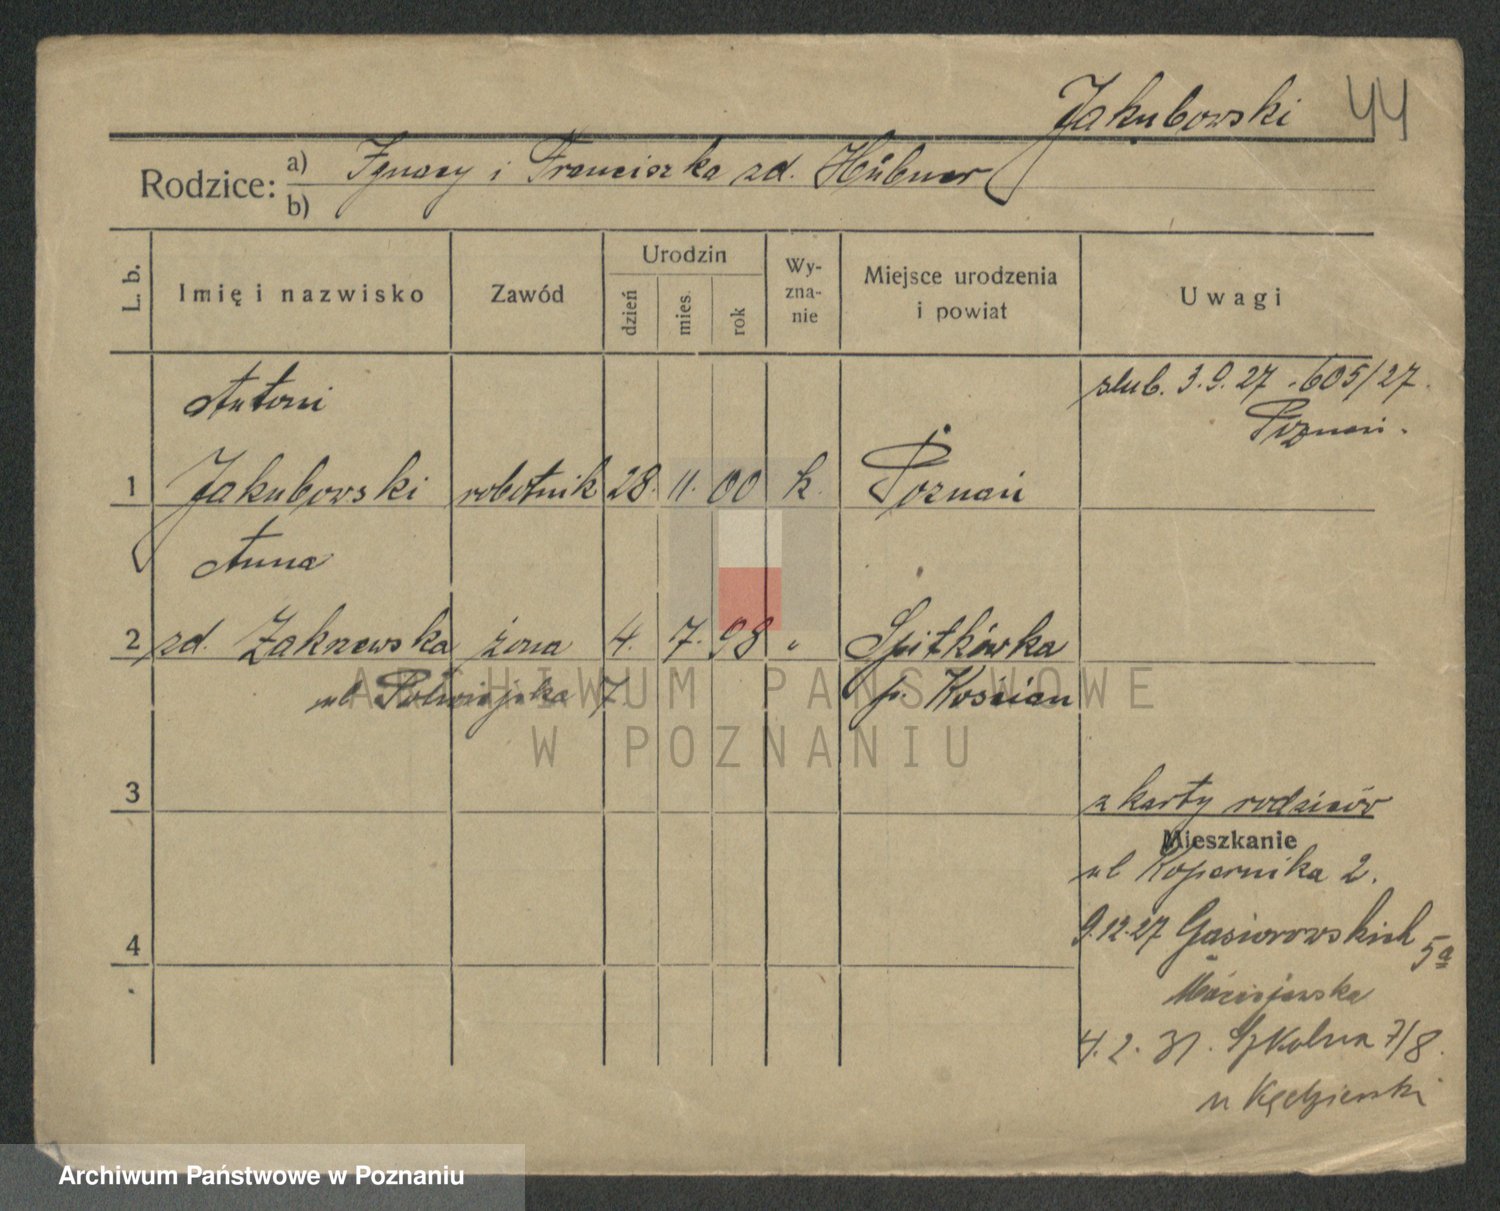 Jakubowski 44
Rodzice: a) Ignacy i Franciszka zd. Hübner
b)
L. b. Imię i nazwisko Zawód Urodzin dzień mies. rok Wy-zna-nie Miejsce urodzenia i powiat Uwagi
ślub. 3.9.27 . 605/27.
Poznań.
Antoni
1 Jakubowski robotnik 28. 11. 00 k. Poznań
Anna
2 zd. Zakrzewska żona 4. 7. 98 " Spitkówka
ul Półwiejska 7. p. Kościan
3
z karty rodziców
Mieszkanie
ul Kopernika 2.
9.12.27 Gąsiorowskich 5a
4
Maciejewska
4. 2. 31. Szkolna 7/8.
u Kędzierski
ARCHIWUM PAŃSTWOWE
W POZNANIU
Archiwum Państwowe w Poznaniu